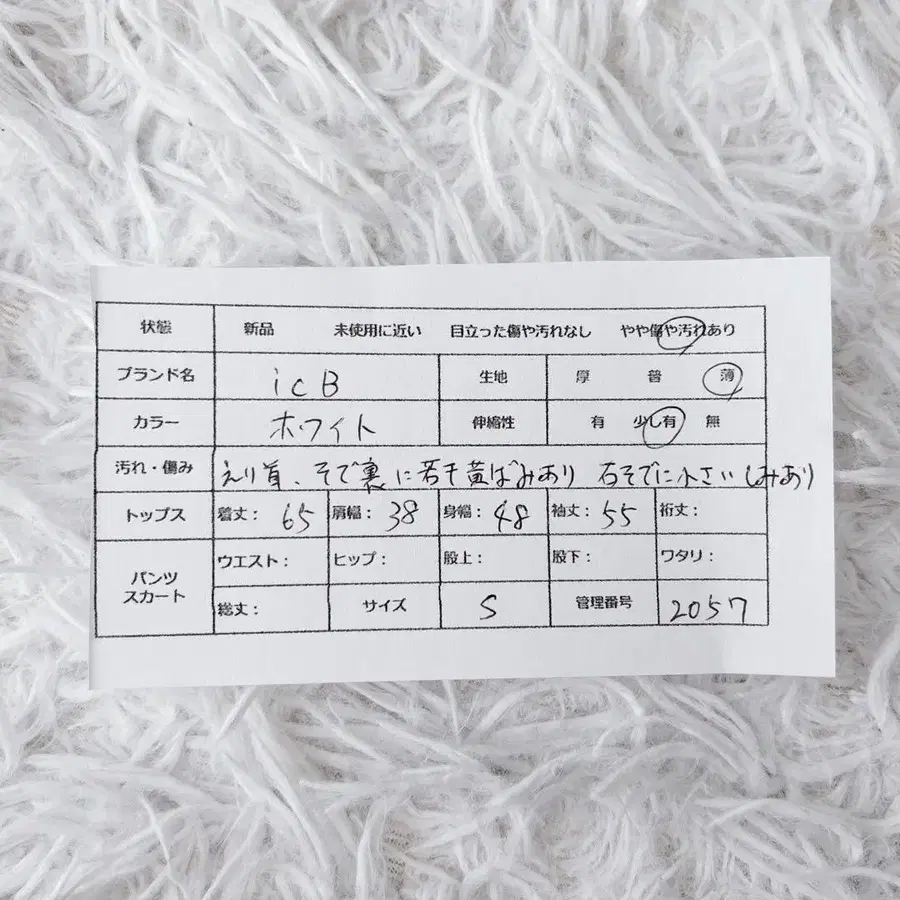 状態 新品 未使用に近い 目立った傷や汚れなし やや傷や汚れあり
ブランド名 icB 生地 厚 普 薄
カラー ホワイト 伸縮性 有 少し有 無
汚れ・傷み えり首、そで裏に若干黄ばみあり 右そでに小さいしみあり
トップス 着丈: 65 肩幅: 38 身幅: 48 袖丈: 55 裄丈:
パンツ スカート ウエスト: ヒップ: 股上: 股下: ワタリ:
総丈: サイズ S 管理番号 2057